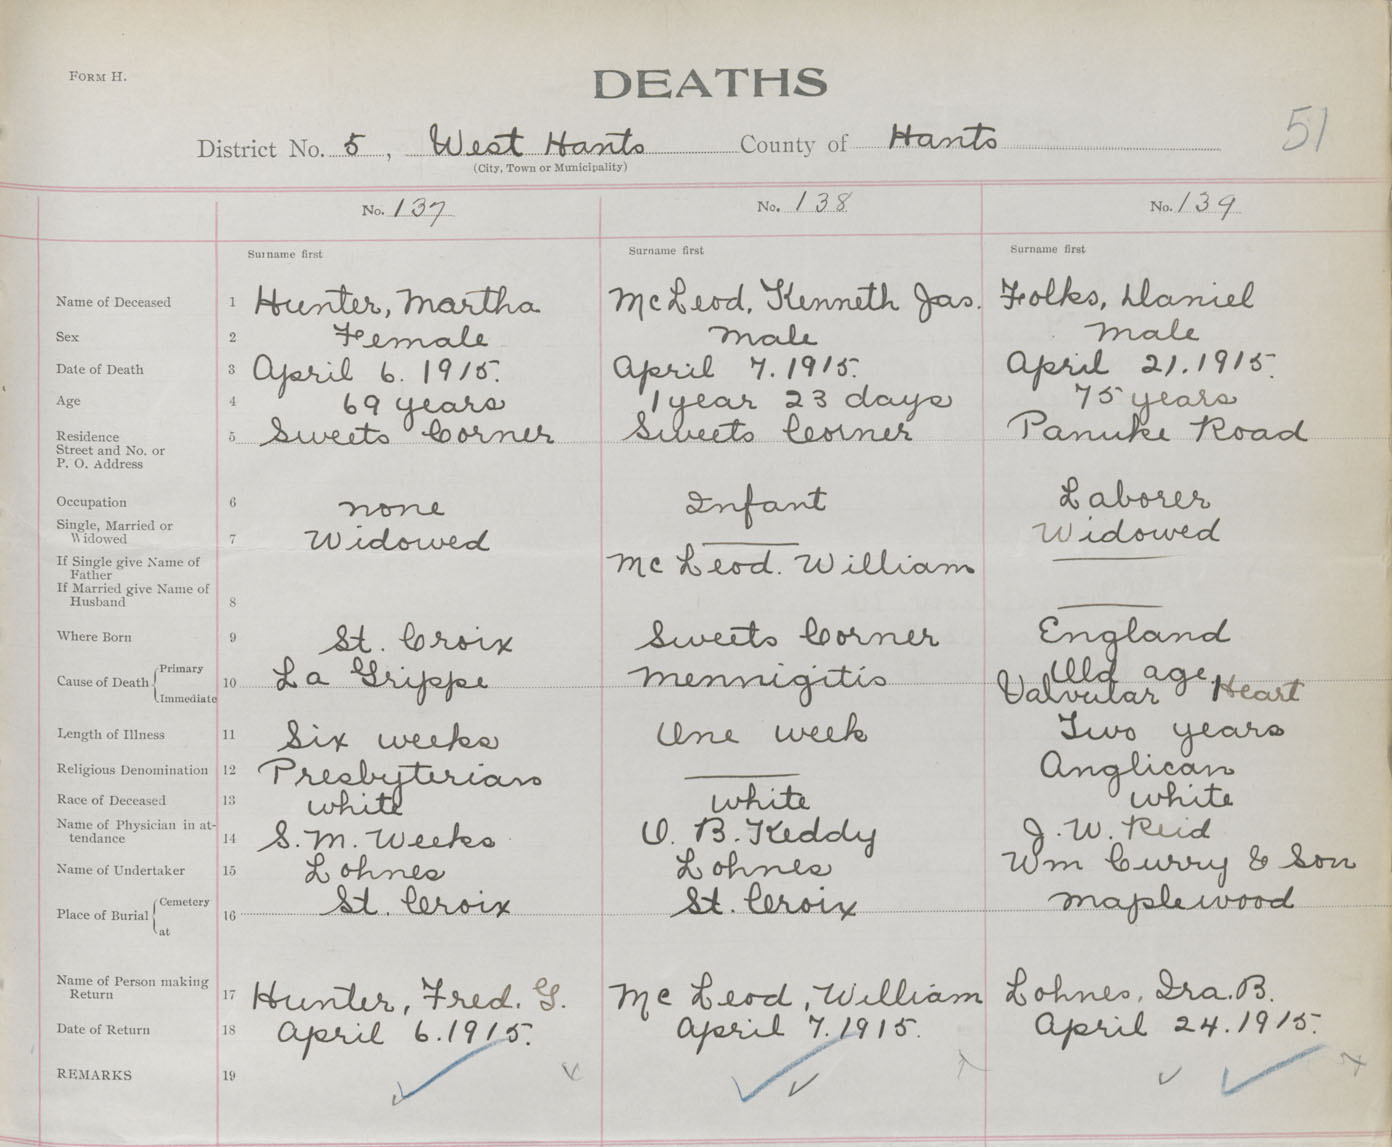 FORM H.
DEATHS
51
District No. 5, West Hants County of Hants
(City, Town or Municipality)
No. 137 No. 138 No. 139
Surname first Surname first Surname first
Name of Deceased 1 Hunter, Martha McLeod, Kenneth Jas. Folks, Daniel
Sex 2 Female Male Male
Date of Death 3 April 6. 1915. April 7. 1915. April 21. 1915.
Age 4 69 years 1 year 23 days 75 years
Residence 5 Sweets Corner Sweets Corner Panuke Road
Street and No. or
P. O. Address
Occupation 6 none Infant Laborer
Single, Married or
Widowed 7 Widowed Widowed
If Single give Name of McLeod. William
Father
If Married give Name of
Husband 8
Where Born 9 St. Croix Sweets Corner England
Cause of Death Primary 10 La Grippe Mennigitis Old age,
Immediate Valvular Heart
Length of Illness 11 Six weeks One week Two years
Religious Denomination 12 Presbyterian Anglican
Race of Deceased 13 white white white
Name of Physician in at-
tendance 14 S. M. Weeks O. B. Keddy J. W. Reid
Name of Undertaker 15 Lohnes Lohnes Wm Curry & Son
Place of Burial Cemetery 16 St. Croix St. Croix Maplewood
at
Name of Person making
Return 17 Hunter, Fred. G. McLeod, William Lohnes, Ira. B.
Date of Return 18 April 6. 1915. April 7. 1915. April 24. 1915.
REMARKS 19